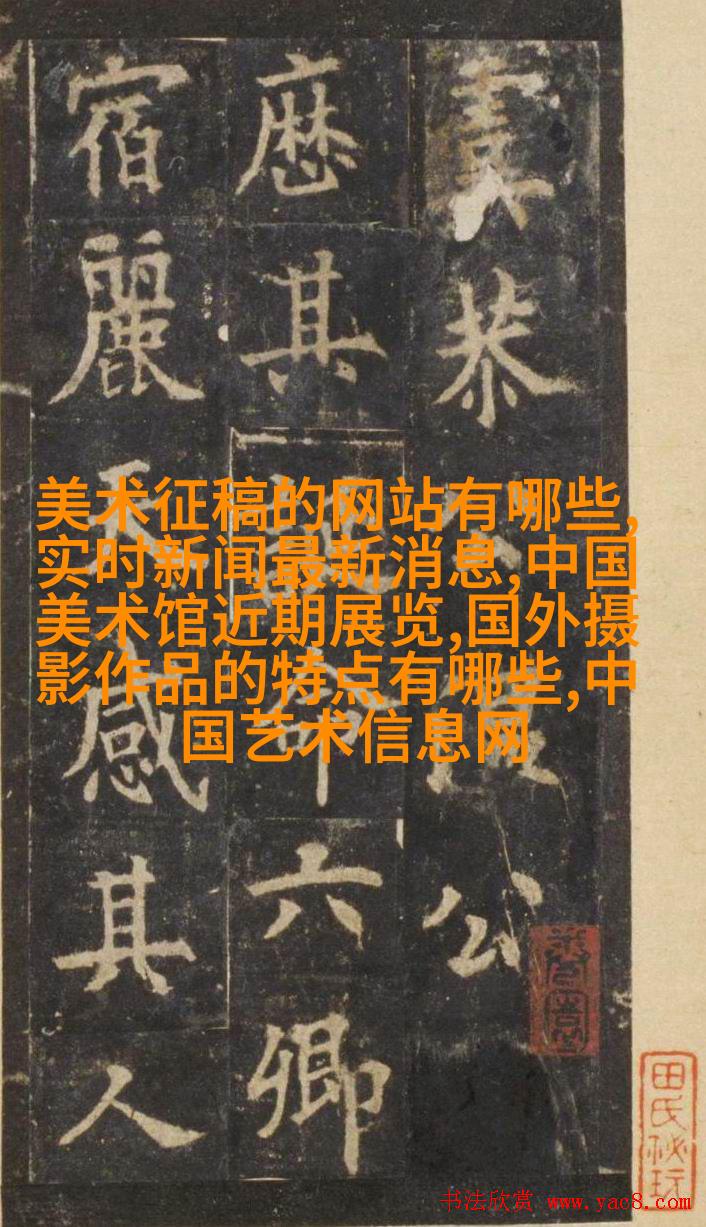 恭 公
其 六卿
宿麗天感其人
美术征稿的网站有哪些,
实时新闻最新消息,中国
美术馆近期展览,国外摄
影作品的特点有哪些,中
国艺术信息网
田氏秘玩
书法欣赏 www.yac8.com